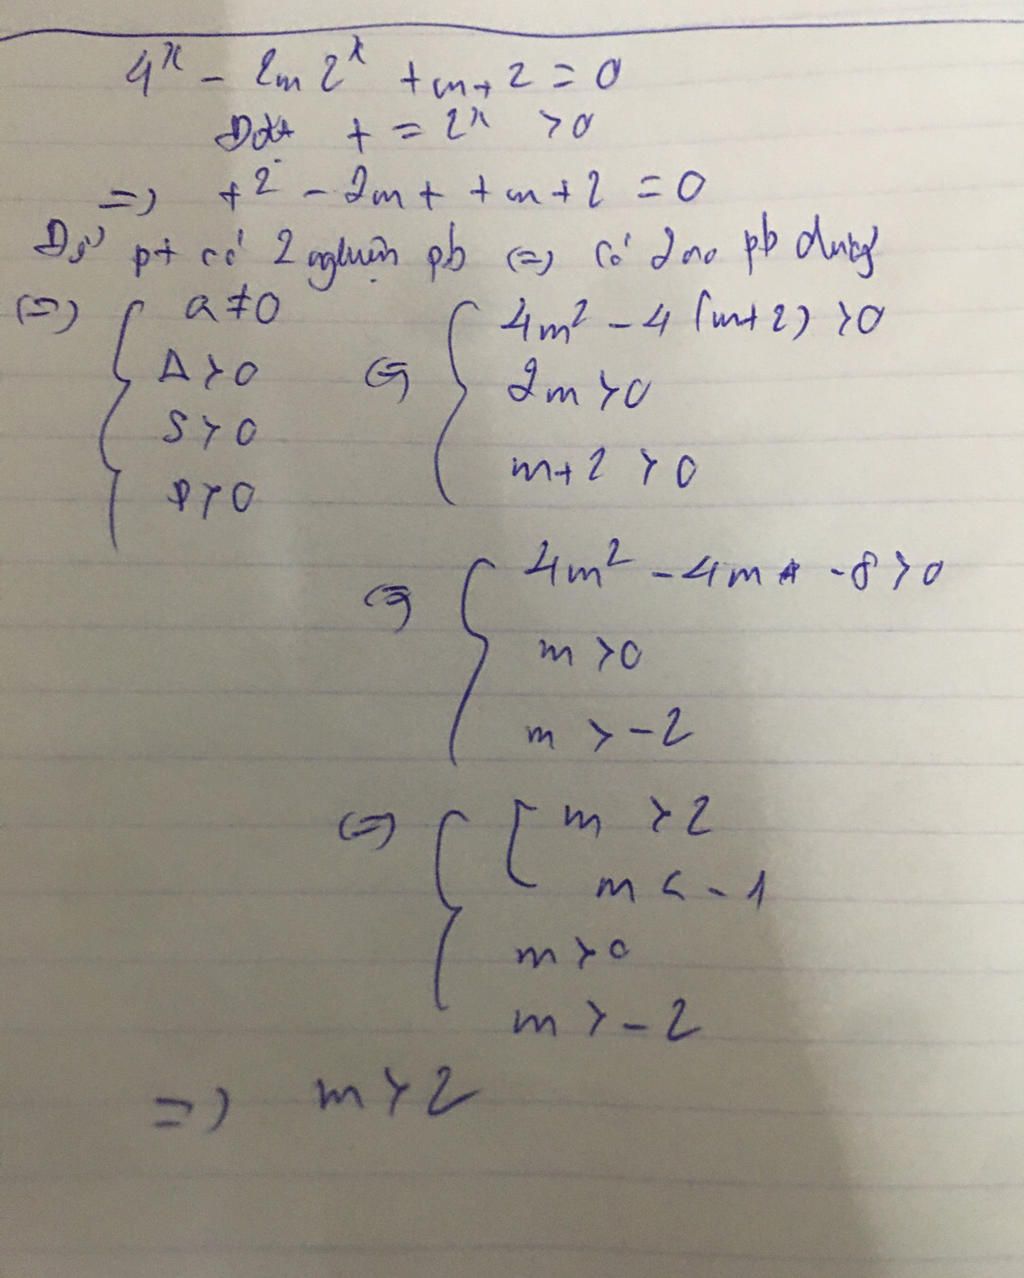 4^x - 2m 2^x + m + 2 = 0
Đặt t = 2^x > 0
=> t^2 - 2mt + m + 2 = 0
Để pt có 2 nghiệm pb <=> có 2 no pb dương
<=> { a ≠ 0 <=> { 4m^2 - 4(m+2) > 0
Δ > 0 2m > 0
S > 0 m + 2 > 0
P > 0
<=> { 4m^2 - 4m - 8 > 0
m > 0
m > -2
<=> { [ m > 2
m < -1
m > 0
m > -2
=> m > 2